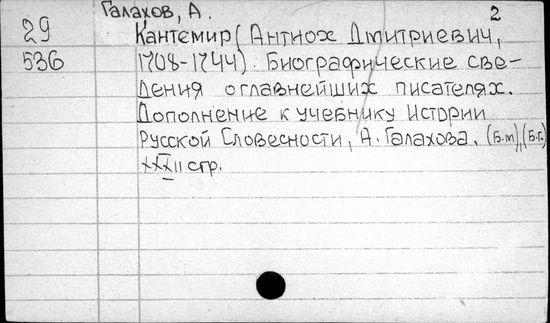 Галахов, А.
2
29
536
Кантемир (Антиох Дмитриевич,
1708-1744). Биографические све-
дения о главнейших писателях.
Дополнение к учебнику Истории
Русской Словесности, А. Галахова. (Б.м), (Б.г.)
XXXII стр.